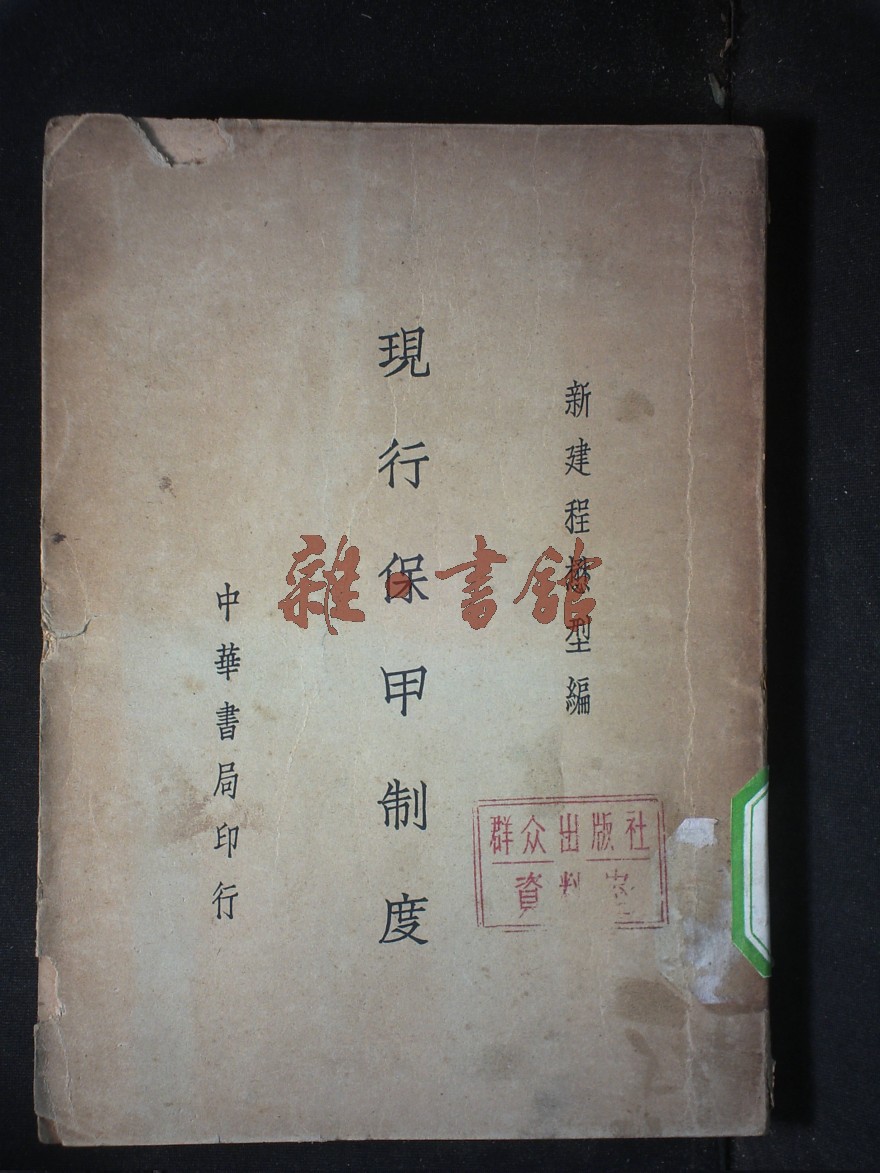 新建程懋型編
現行保甲制度
中華書局印行
雜·書館
群众出版社
資料室